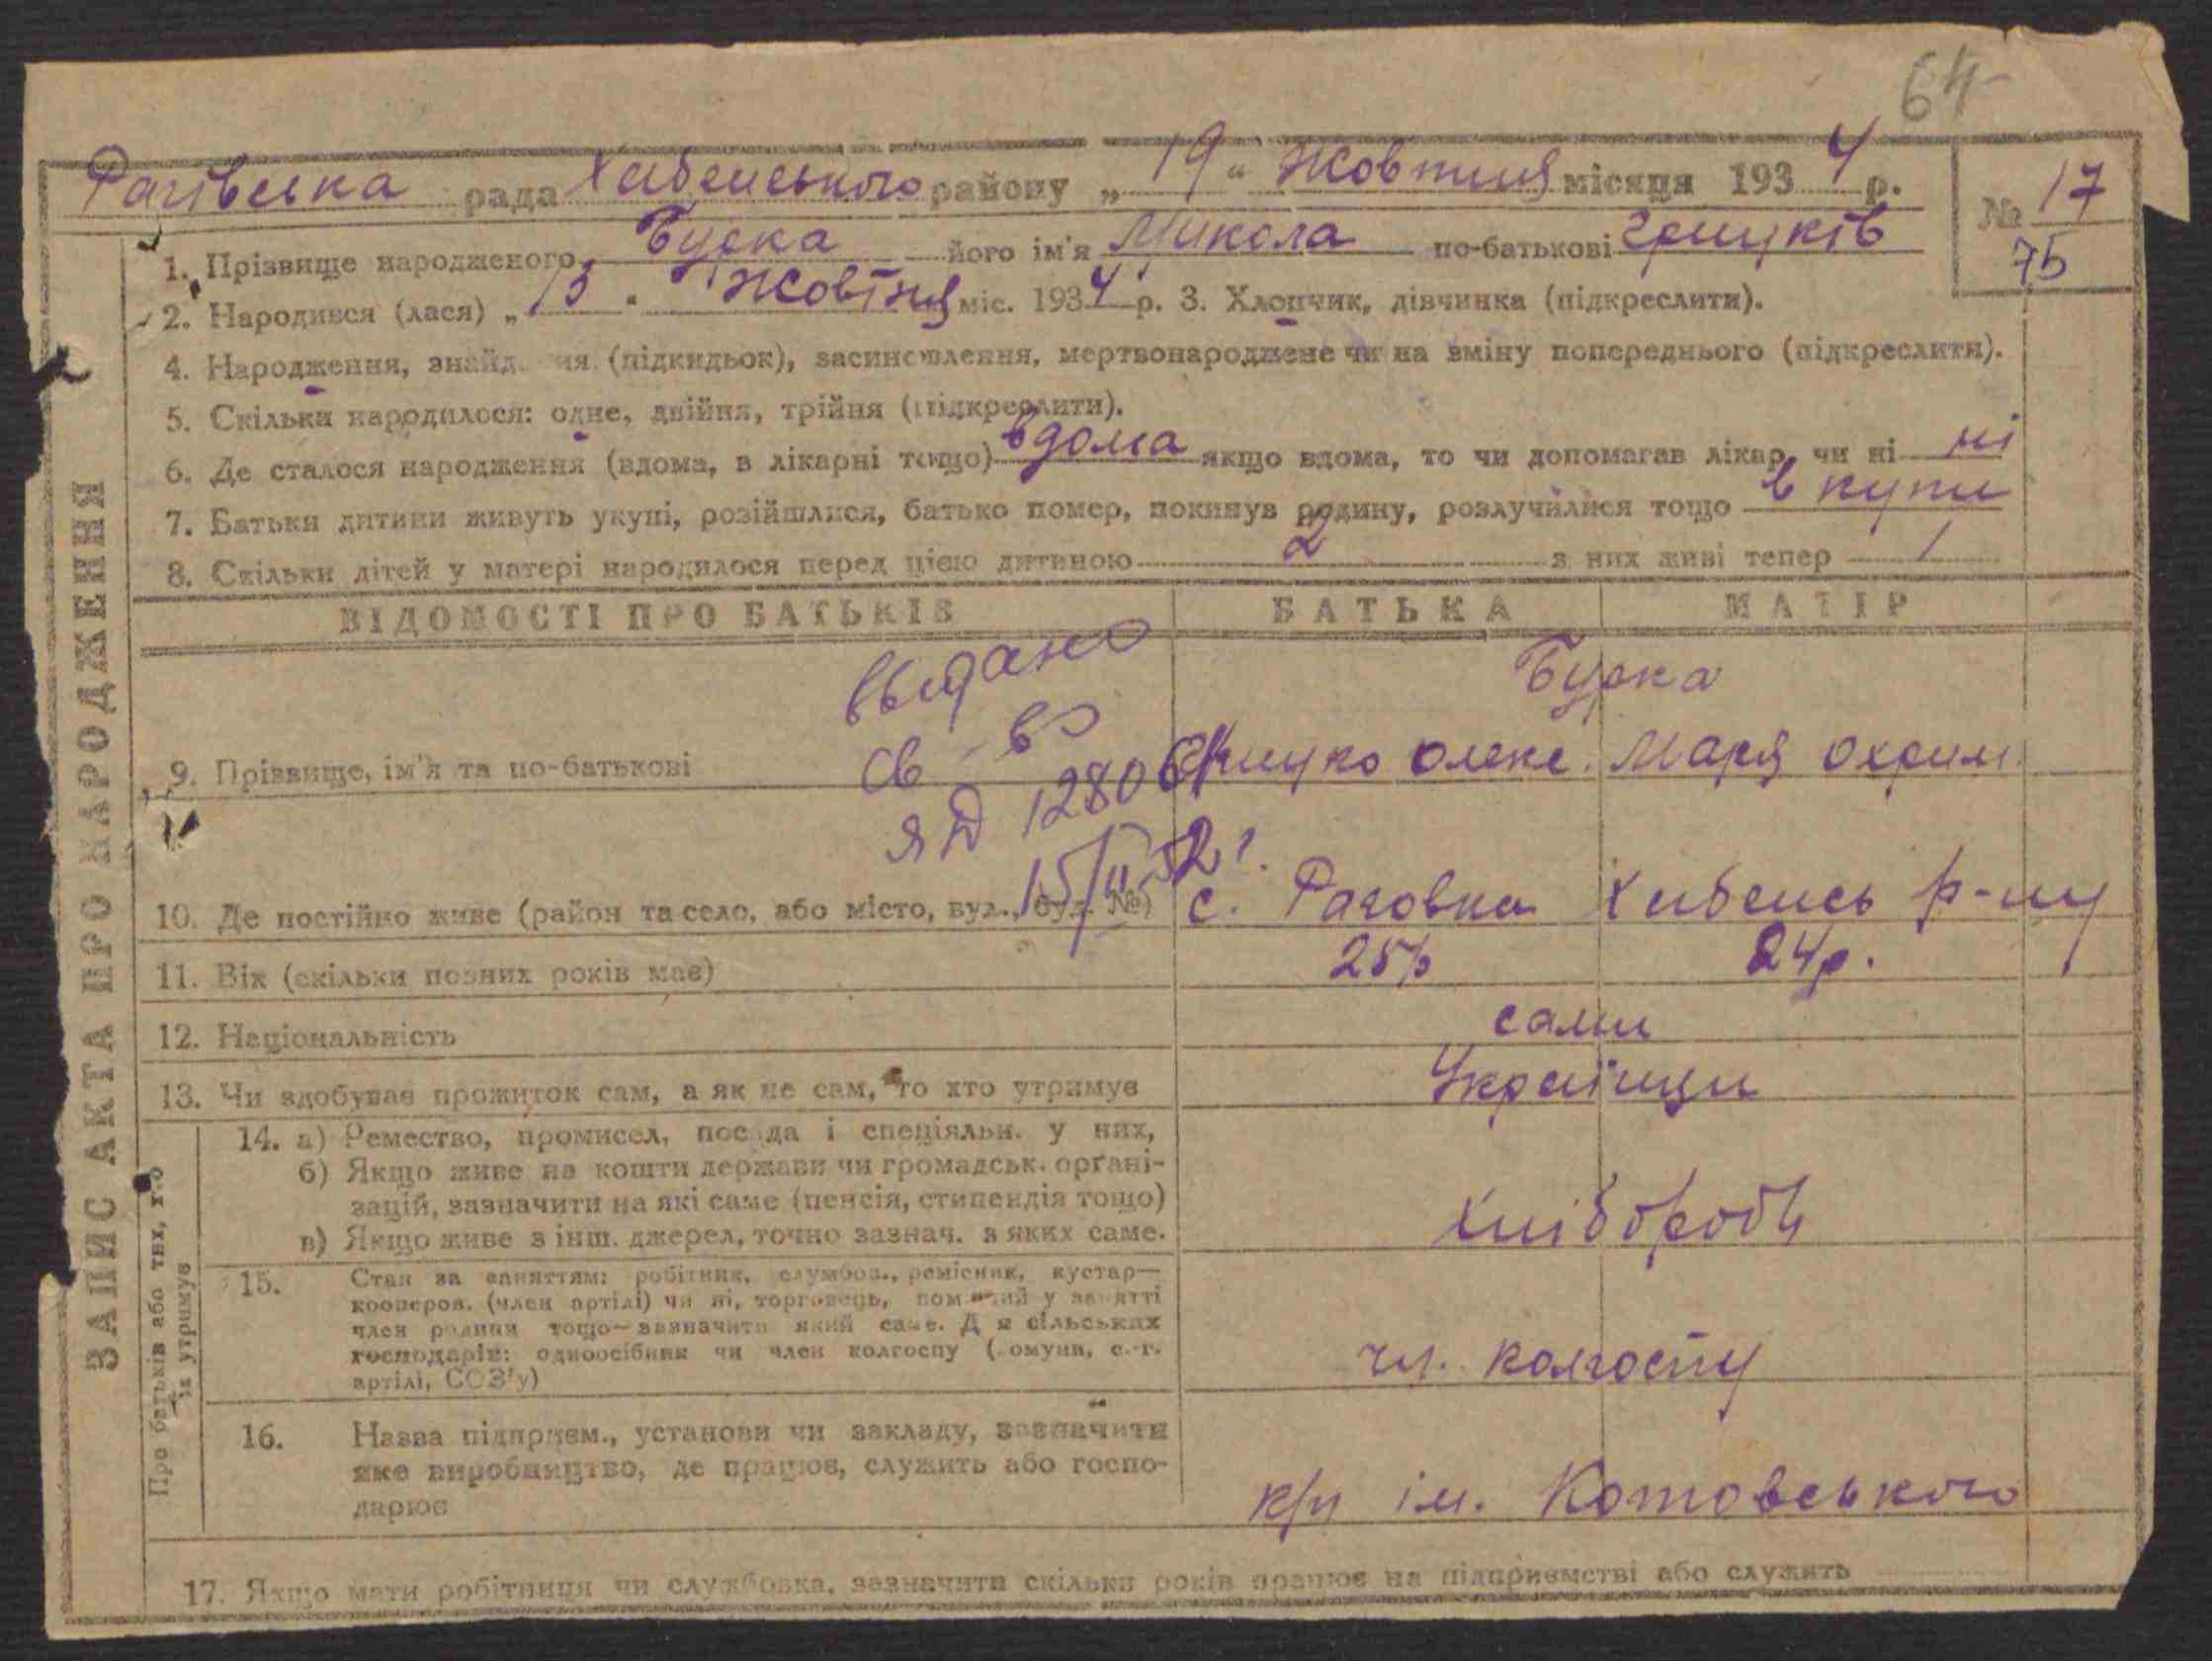 64
Рагівська рада Хабенського району „ 19 “ Жовтня місяця 193 4 р.
№ 17
75
1. Прізвище народженого Бурка його ім'я Микола по-батькові Грицьків
2. Народився (лася) „ 15 “ Жовтня міс. 193 4 р. 3. Хлопчик, дівчинка (підкреслити).
4. Народження, знайд ня (підкидьок), засиновлення, мертвонароджене чи на зміну попереднього (підкреслити).
5. Скільки народилося: одне, двійня, трійня (підкреслити).
6. Де сталося народження (вдома, в лікарні тощо) вдома якщо вдома, то чи допомагав лікар, чи ні ні
7. Батьки дитини живуть укупі, розійшлися, батько помер, покинув родину, розлучилися тощо в купи
8. Скільки дітей у матері народилося перед цією дитиною 2 з них живі тепер 1
ВІДОМОСТІ ПРО БАТЬКІВ БАТЬКА МАТІР
Бурка
выдано
св-во
9. Прізвище, ім'я та по-батькові олекс. Мария охрим
ЯД 12806
15/II 52 г.
10. Де постійно живе (район та село, або місто, вул., буд. №) с. Раговка Хабенсь р-ну
11. Вік (скільки повних років має) 25р 24р.
12. Національність сами
13. Чи здобуває прожиток сам, а як не сам, то хто утримує Українци
14. а) Ремество, промисел, посада і спеціяльн. у них,
б) Якщо живе на кошти держави чи громадськ. орґані-
зацій, зазначити на які саме (пенсія, стипендія тощо)
в) Якщо живе з інш. джерел, точно зазнач. з яких саме.
хлібороби
15. Стан за заняттям: робітник, службов., ремісник, кустар—
коопєров. (член артілі) чи ні, торговець, пом чий у занятті
член родини тощо—зазначити який саме. Д я сільських
господарів: одноосібник чи член колгоспу ( омуни, с.-г.
артілі, СОЗ'у)
чл. колгоспу
16. Назва підприєм., установи чи закладу, зазначити
яке виробництво, де працює, служить або госпо-
дарює
к/г ім. Котовського
17. Якщо мати робітниця чи службовка, зазначити скільки років працює на підприємстві або служить
ЗАПИС АКТА ПРО НАРОДЖЕННЯ
Про батьків або тих, хто
їх утримує